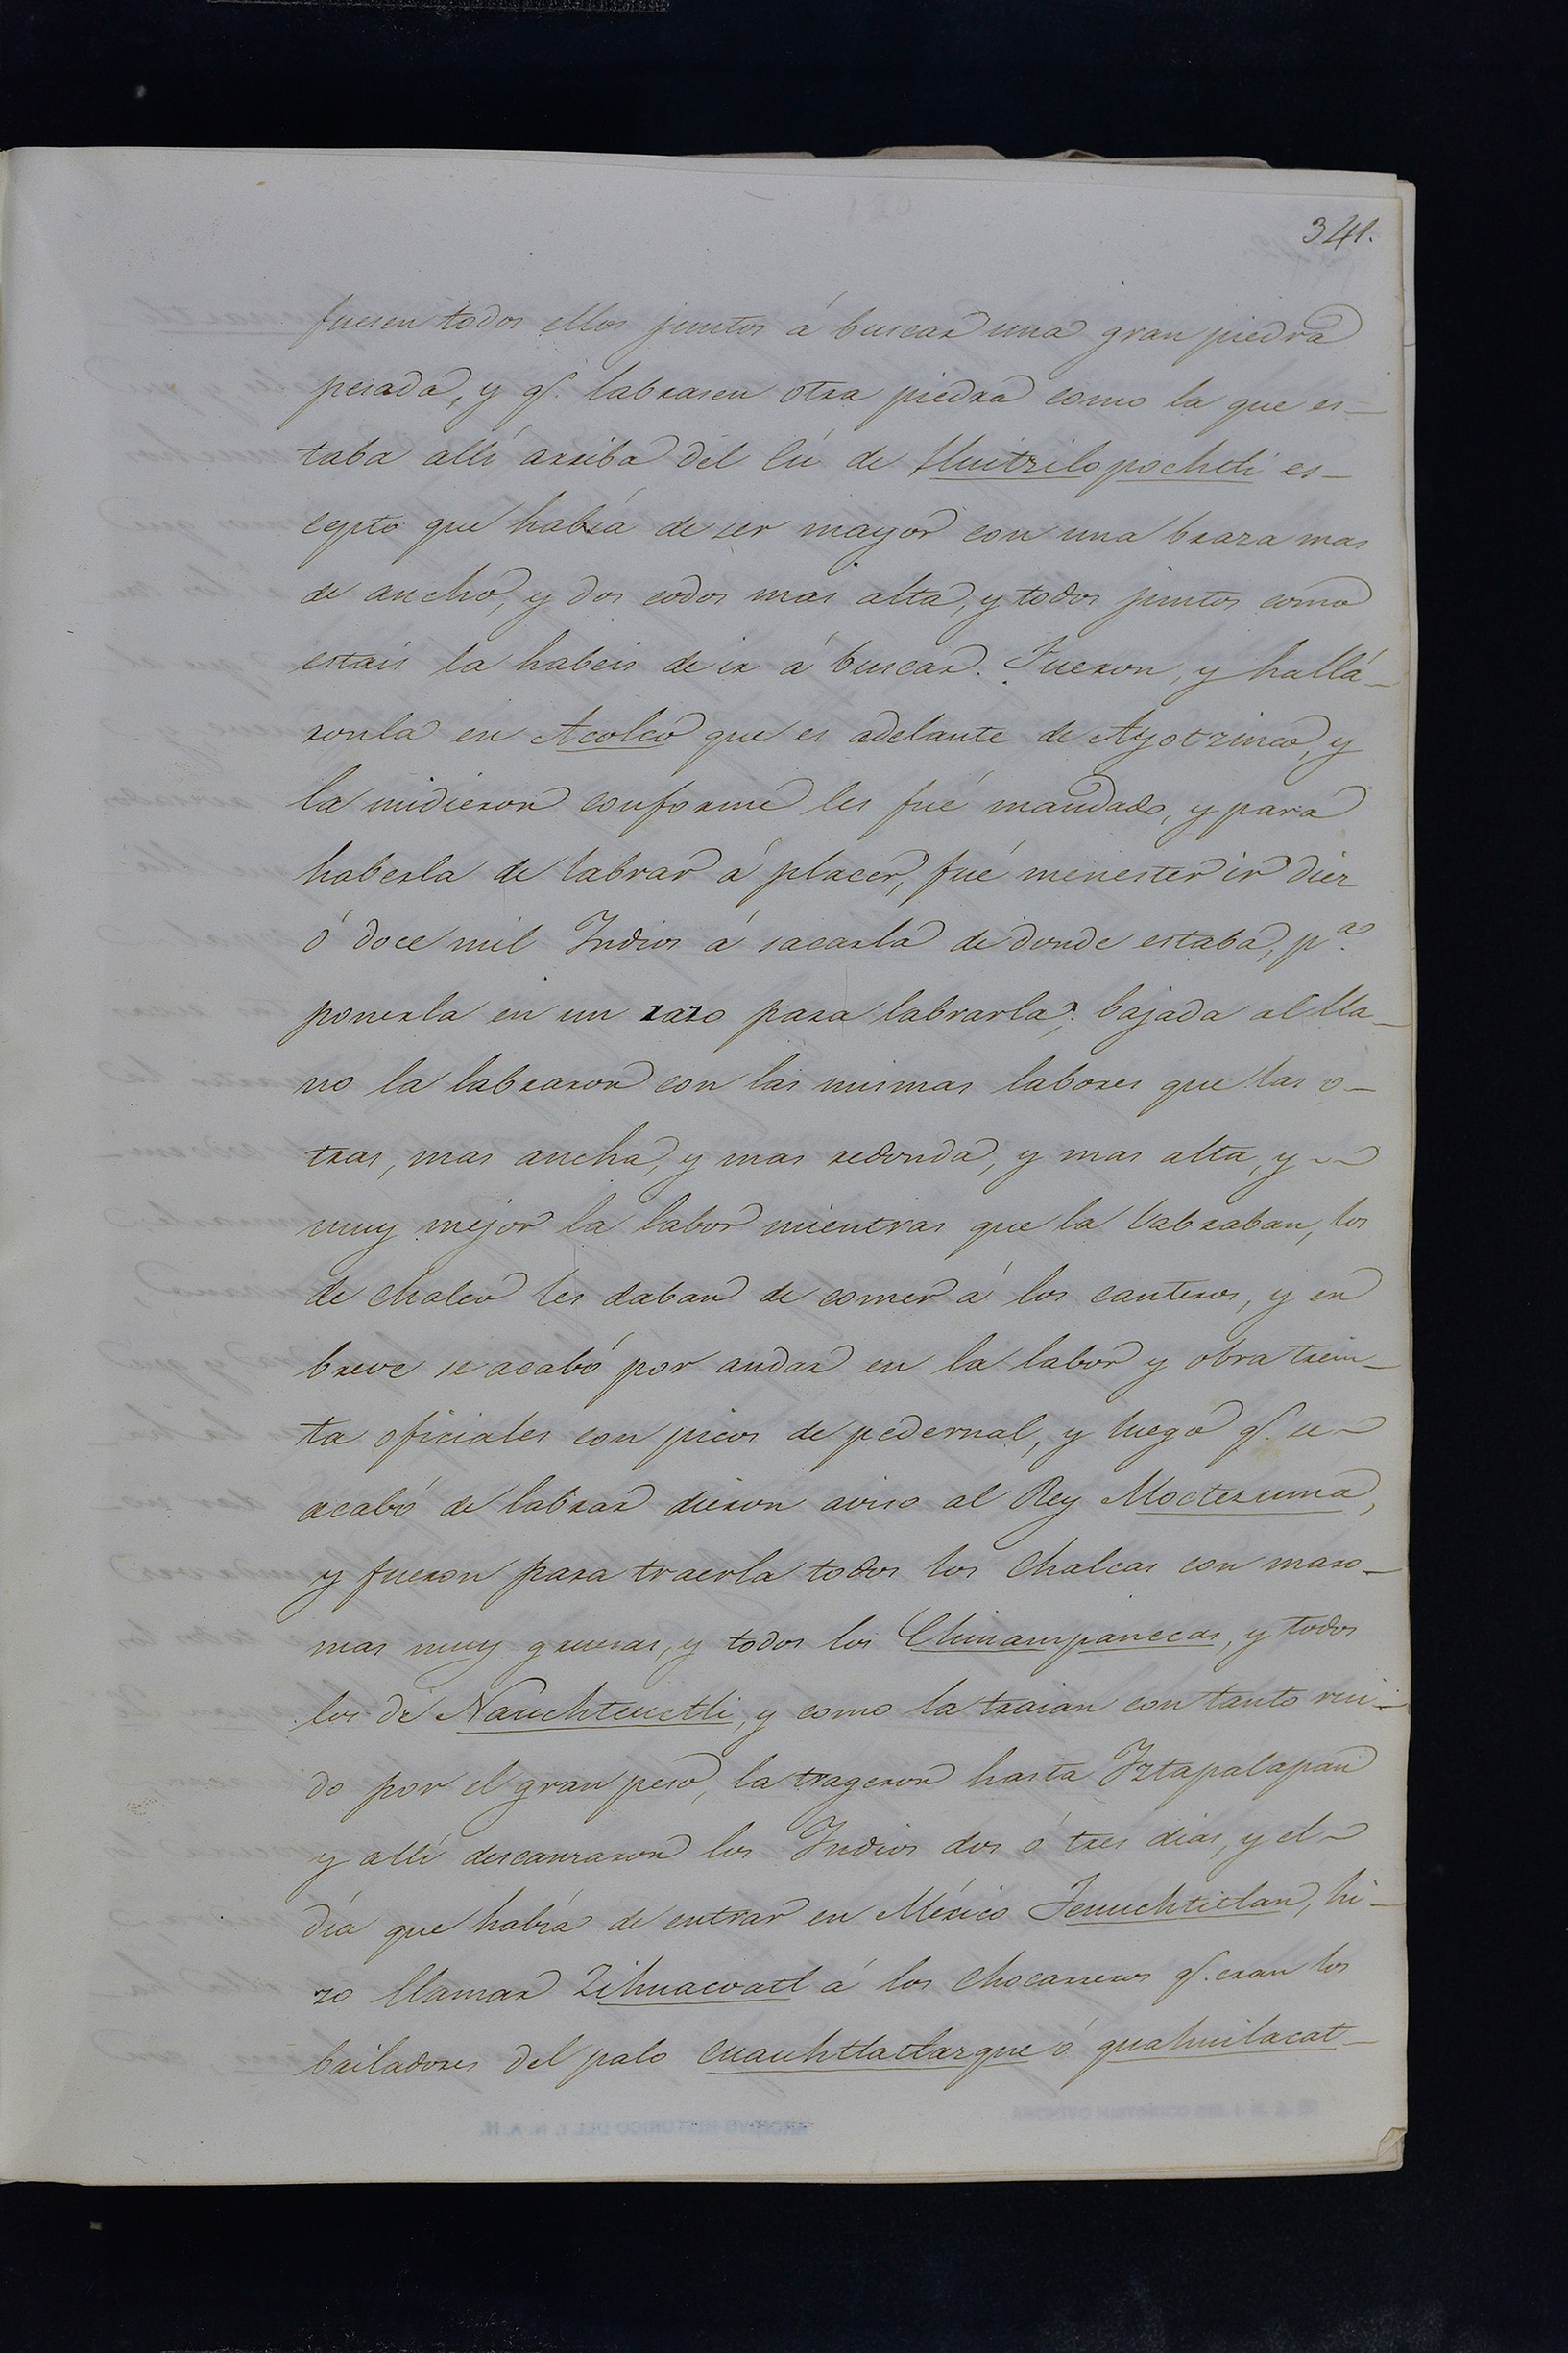 341.
fuesen todos ellos juntos á buscar una gran piedra
pesada, y q.e labrasen otra piedra como la que es-
taba allí arriba del Cú de Huitzilopochtli es-
cepto que había de ser mayor con una braza mas
de ancho, y dos codos mas alta, y todos juntos como
estais la habeis de ir á buscar. Fueron, y hallá-
ronla en Acolco que es adelante de Ayotzinco, y
la midieron conforme les fué mandado, y para
haberla de labrar á placer, fué menester ir diez
ó doce mil Indios á sacarla de donde estaba, p.a
ponerla en un raso para labrarla: bajada al lla-
no la labraron con las mismas labores que las o-
tras, mas ancha, y mas redonda, y mas alta, y
muy mejor la labor mientras que la labraban, los
de Chalco les daban de comer á los canteros, y en
breve se acabó por andar en la labor y obra trein-
ta oficiales con picos de pedernal, y luego q.e se
acabó de labrar dieron aviso al Rey Moctezuma,
y fueron para traerla todos los Chalcas con maro-
mas muy gruesas, y todos los Chinampanecas, y todos
los de Nauchteuctli, y como la traian con tanto rui-
do por el gran peso, la trageron hasta Iztapalapan
y allí descansaron los Indios dos ó tres dias, y el
día que había de entrar en México Tenuchtitlan, hi-
zo llamar Zihuacoatl á los chocarreros q.e eran los
bailadores del palo cuauhtlatlazque ó quahuilacat-